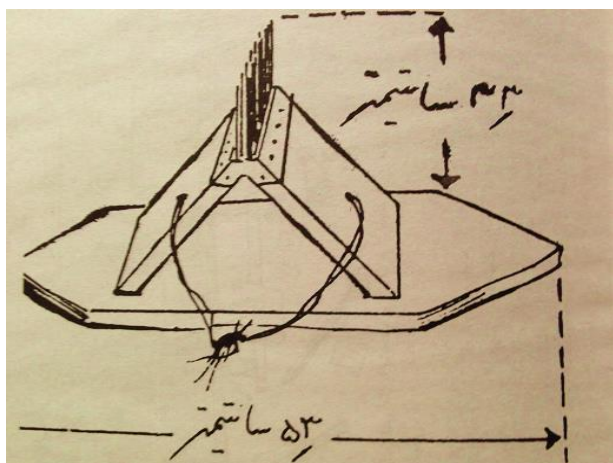 ۴۴ سانتمتر
۵۳ سانتمتر